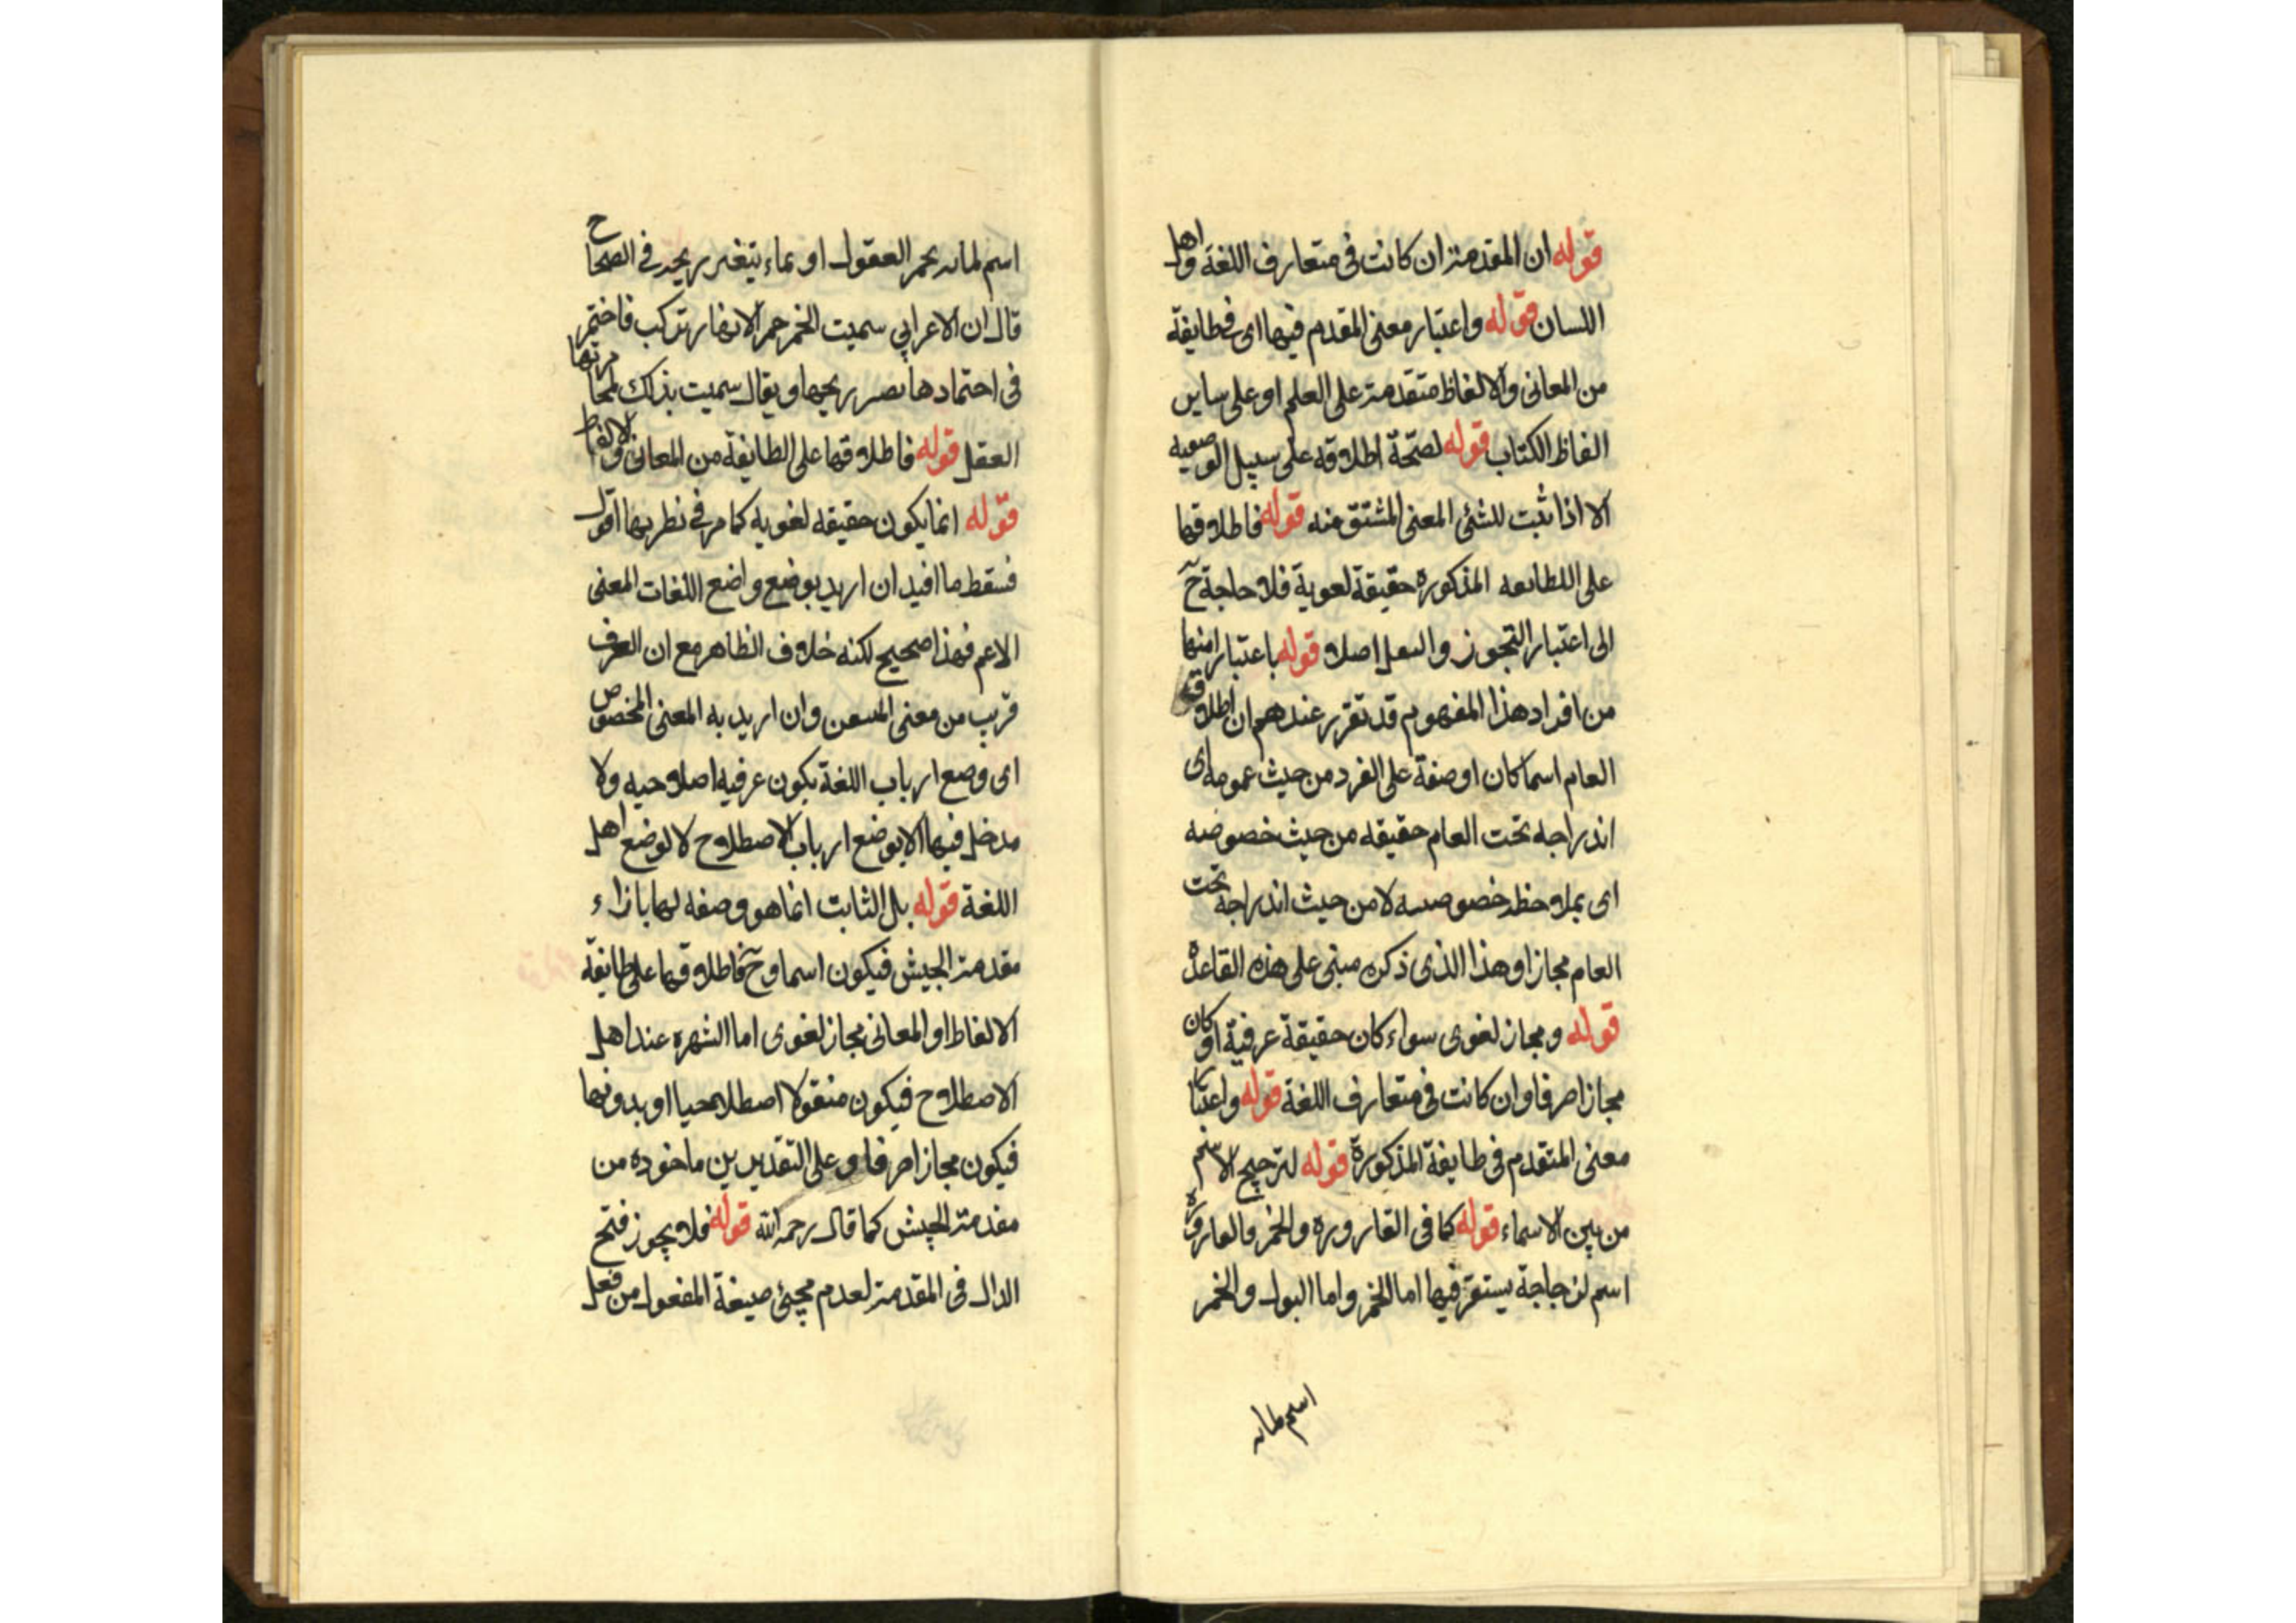 قوله ان المقدمة ان كانت فى متعارف اللغة واهل
اللسان قوله واعتبار معنى المقدم فيها اى فى طايفة
من المعانى والالفاظ متقدمة على العلم او على ساير
الفاظ الكتاب قوله لصحة اطلاقه على سبيل الوصفيه
الا اذا ثبت للشئ المعنى المشتق منه قوله فاطلاقها
على الطايعه المذكوره حقيقة لعوية فلا حاجة ح
الى اعتبار التجوز والنعل اصلا قوله باعتبار انها
من افراد هذا المفهوم قد تقرر عندهم ان اطلاق
العام اسما كان او صفة على الفرد من حيث عمومه اى
اندراجه تحت العام حقيقه من حيث خصوصه
اى بملاحظة خصوصه لا من حيث اندراجه تحت
العام مجازا وهذا الذى ذكره مبنى على هذه القاعدة
قوله ومجاز لغوى سواء كان حقيقة عرفية او كان
مجازا صرفا وان كانت فى متعارف اللغة قوله واعتبار
معنى المتقدم فى طايفة المذكورة قوله لترجيح الاسم
من بين الاسماء قوله كما فى القاروره والخمر فالقارورة
اسم لزجاجة يستقر فيها اما الخمر واما البول والخمر
اسم لمانه
اسم لمانه يحمر العقول او بماء يتغير ريحه فى الصحاح
قال ان الاعرابي سميت الخمر خمرا لانها تركت فاختمر
فى احتمادها تصير ريحها ويقال سميت بذلك لمخامرتها
العقل قوله فاطلاقها على الطايفة من المعانى والالفاظ
قوله انما يكون حقيقه لغويه كما مر فى نظريها اقول
فسقط ما افيد ان اريد بوضع واضع اللغات المعنى
الاعم فهذا صحيح لكنه خلاف الظاهر مع ان العرف
قريب من معنى وان اريد به المعنى المخصوص
اى وضع ارباب اللغة يكون عرفيه اصلاحيه ولا
مدخل فيها الا بوضع ارباب الاصطلاح لا لوضع اهل
اللغة قوله بل الثابت انما هو وصفه لها بازاء
مقدمة الجيش فيكون اسما وح فاطلاقها على طايفة
الالفاظ او المعانى مجاز لغوى اما الشهره عند اهل
الاصطلاح فيكون منقولا اصطلاحيا او بدونها
فيكون مجازا صرفا وعلى التقديرين ماخوده من
مقدمة الجيش كما قال رحمه الله قوله فلا يجوز فتح
الدال فى المقدمة لعدم مجئ صيغة المفعول من فعل